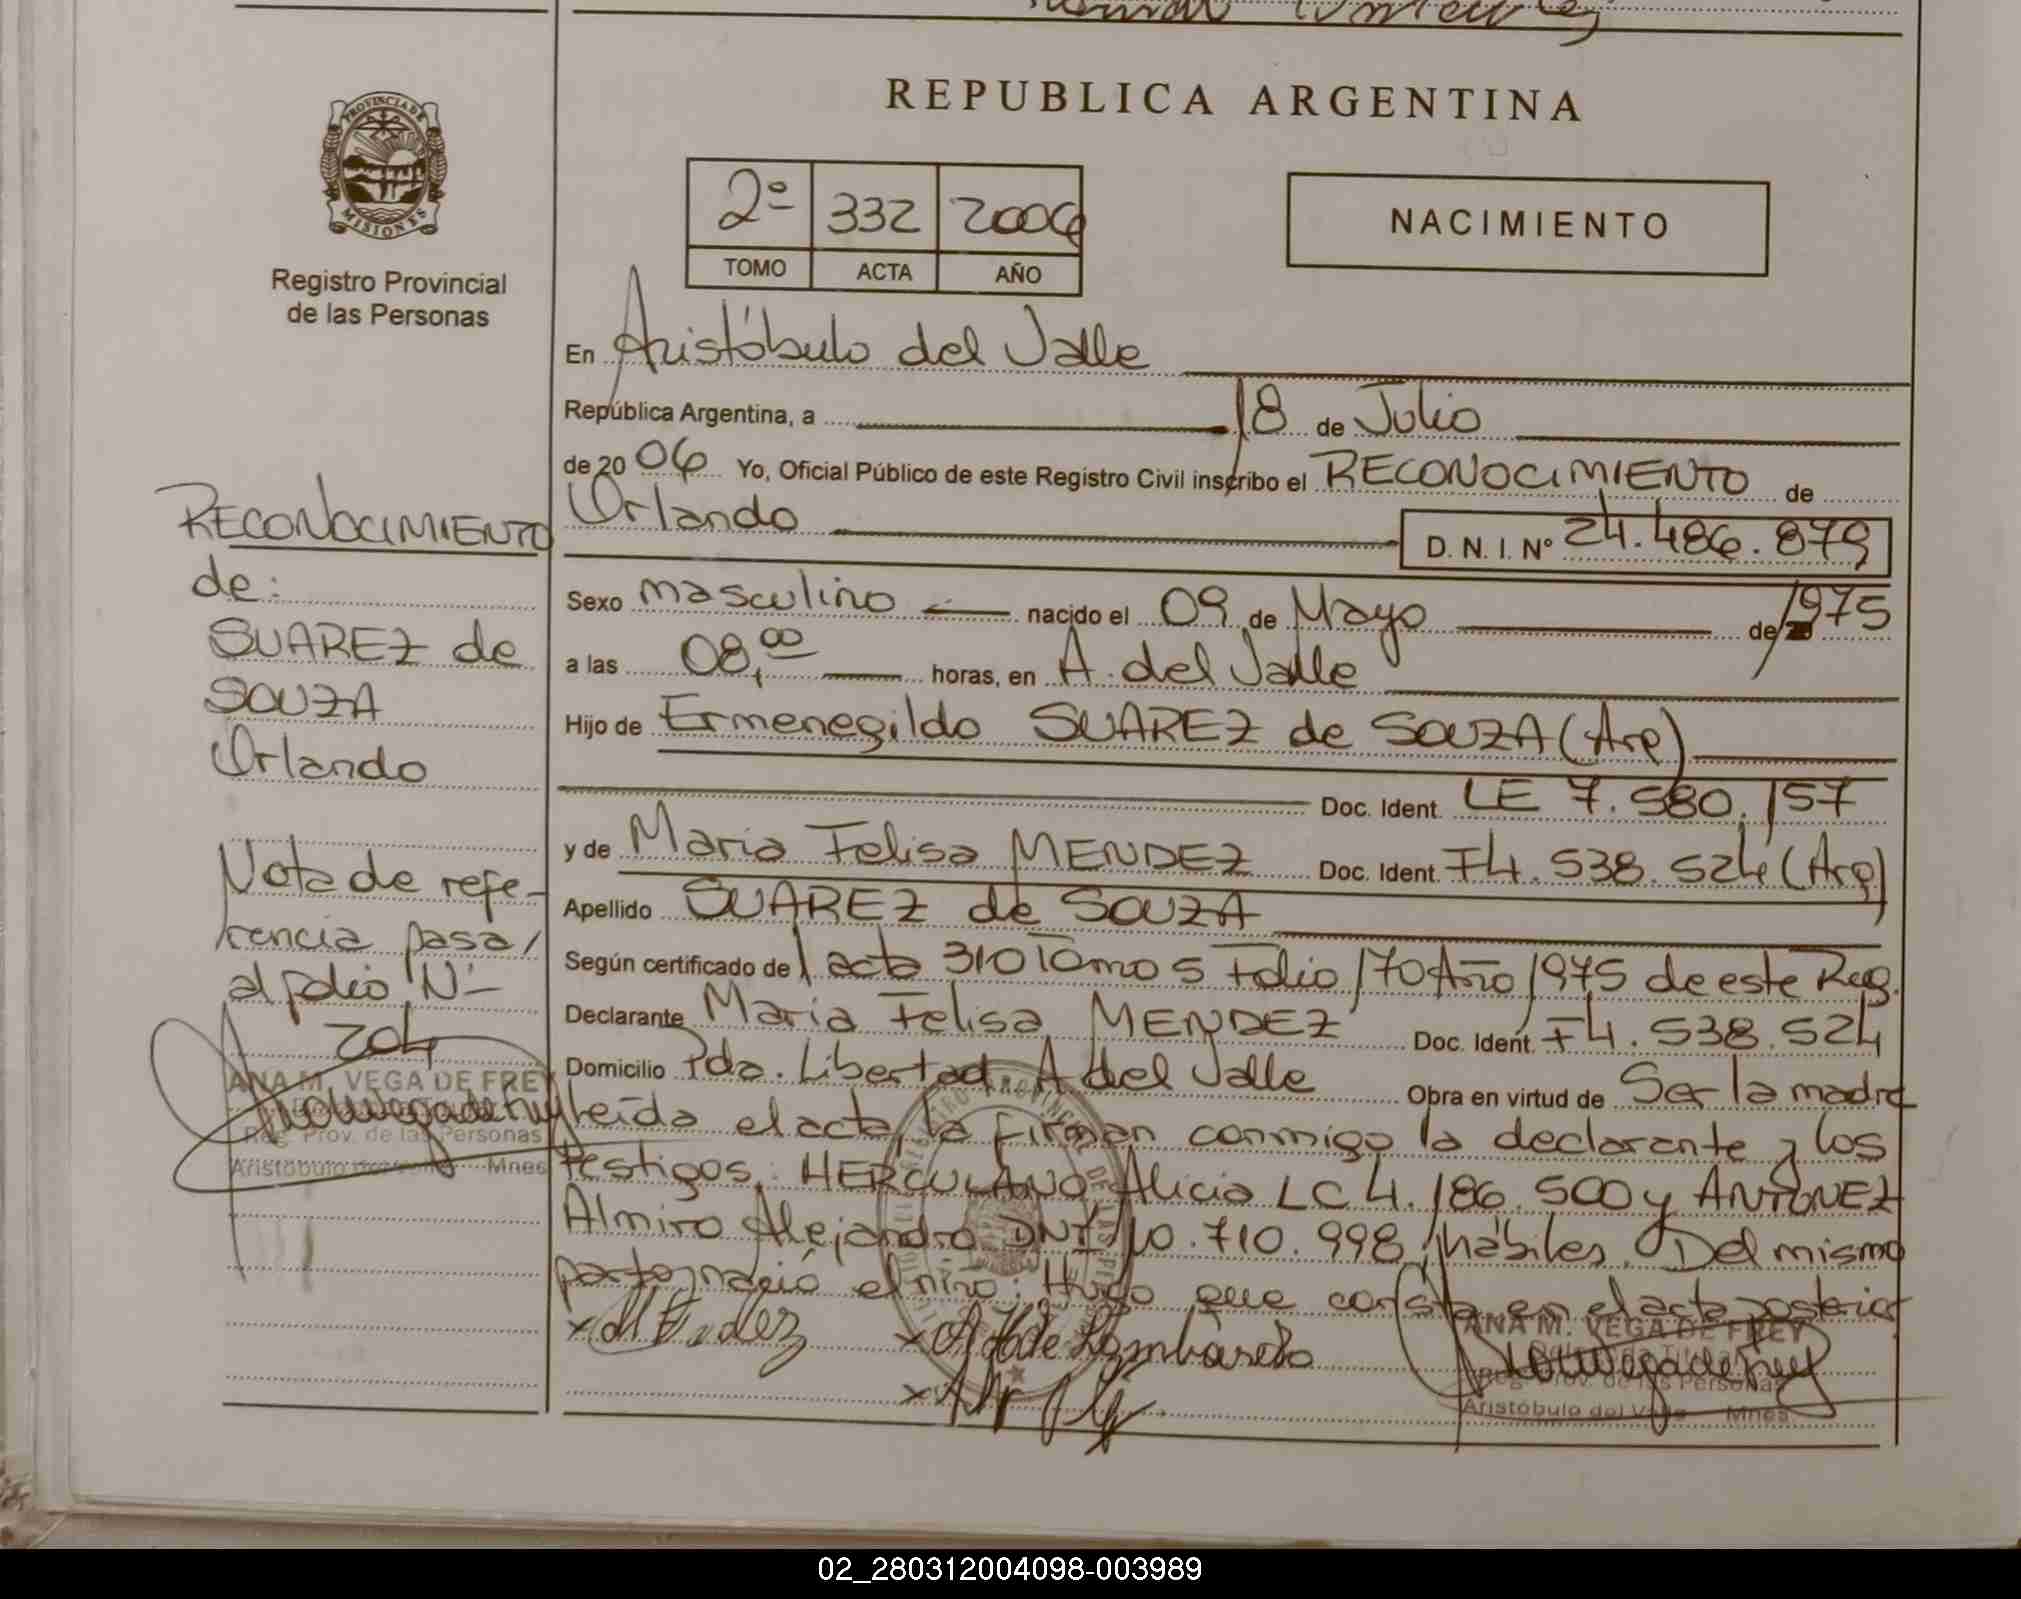 REPUBLICA ARGENTINA
PROVINCIA DE
MISIONES
Registro Provincial
de las Personas
2º 332 2006
TOMO ACTA AÑO
NACIMIENTO
En Aristóbulo del Valle
República Argentina, a 18 de Julio
de 2006 Yo, Oficial Público de este Registro Civil inscribo el RECONOCIMIENTO de
Orlando D. N. I. Nº 24.486.879
Sexo masculino nacido el 09 de Mayo de 1975
a las 08,00 horas, en A. del Valle
Hijo de Ermenegildo SUAREZ de SOUZA (Arg)
Doc. Ident. LE 7.580.157
y de Maria Felisa MENDEZ Doc. Ident. F4.538.524 (Arg)
Apellido SUAREZ de SOUZA
Según certificado de acta 310 Tomo 5 Folio 170 Año 1975 de este Reg.
Declarante Maria Felisa MENDEZ Doc. Ident. F4.538.524
Domicilio Pda. Libertad A del Valle Obra en virtud de Ser la madre
leída el acta, la firman conmigo la declarante y los
testigos: HERCULANO Alicia LC 4.186.500 y ANTUNEZ
Almiro Alejandro DNI 10.710.998, hábiles. Del mismo
parto nació el niño: Hugo que consta en el acta posterior
ANA M. VEGA DE FREY
Reg. Prov. de las Personas
Aristóbulo del Valle Mnes.
RECONOCIMIENTO
de:
SUAREZ de
SOUZA
Orlando
Nota de refe-
rencia pasa/
al folio Nº
204
ANA M. VEGA DE FREY
Reg. Prov. de las Personas
Aristóbulo del Valle Mnes
02_280312004098-003989